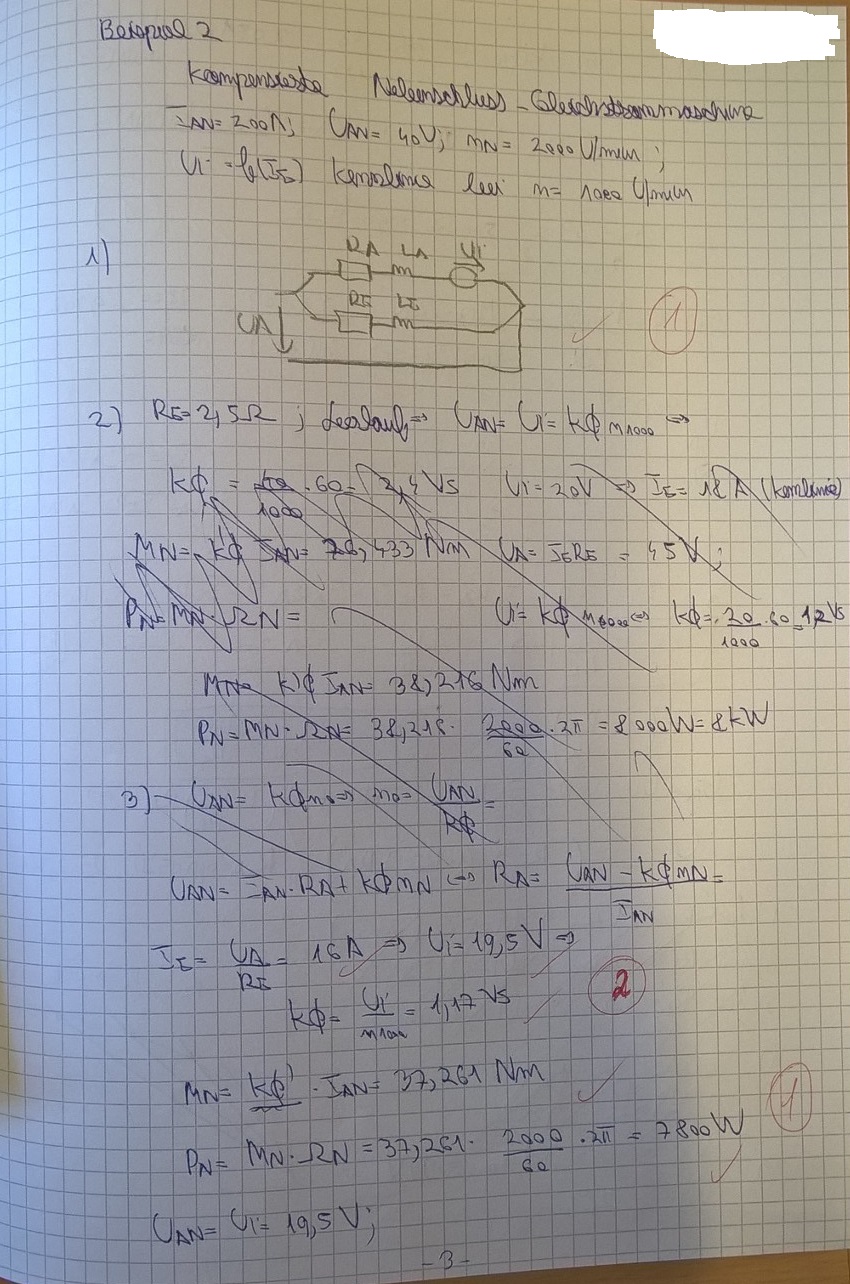 Beispiel 2
Kompensierte Nebenschluss-Gleichstrommaschine
IAN = 200A; UAN = 40V; mN = 2000 U/min;
Ui = f(IE) Kennlinie bei m = 1000 U/min
1)
RA LA Ui
RE LE
UA
1
2) RE = 2,5Ω; Leerlauf => UAN = Ui = kϕ m1000 =>
kϕ = 40/1000 · 60 = 2,4 VS Ui = 20V => IE = 18 A (Kennlinie)
MN = kϕ IAN = 76,433 Nm UA = IERE = 45V;
PN = MN · ΩN = Ui = kϕ m1000 => kϕ = 20/1000 · 60 = 1,2 VS
MN = kϕ IAN = 38,216 Nm
PN = MN · ΩN = 38,216 · 2000/60 · 2π = 8000W = 8kW
3) UAN = kϕm0 => m0 = UAN/kϕ =
UAN = IAN · RA + kϕmN => RA = UAN - kϕmN/IAN =
IE = UA/RE = 16A => Ui = 19,5 V =>
2
kϕ = Ui/m1000 = 1,17 VS
MN = kϕ' · IAN = 37,261 Nm
1
PN = MN · ΩN = 37,261 · 2000/60 · 2π = 7800W
UAN = Ui = 19,5 V;
- 3 -